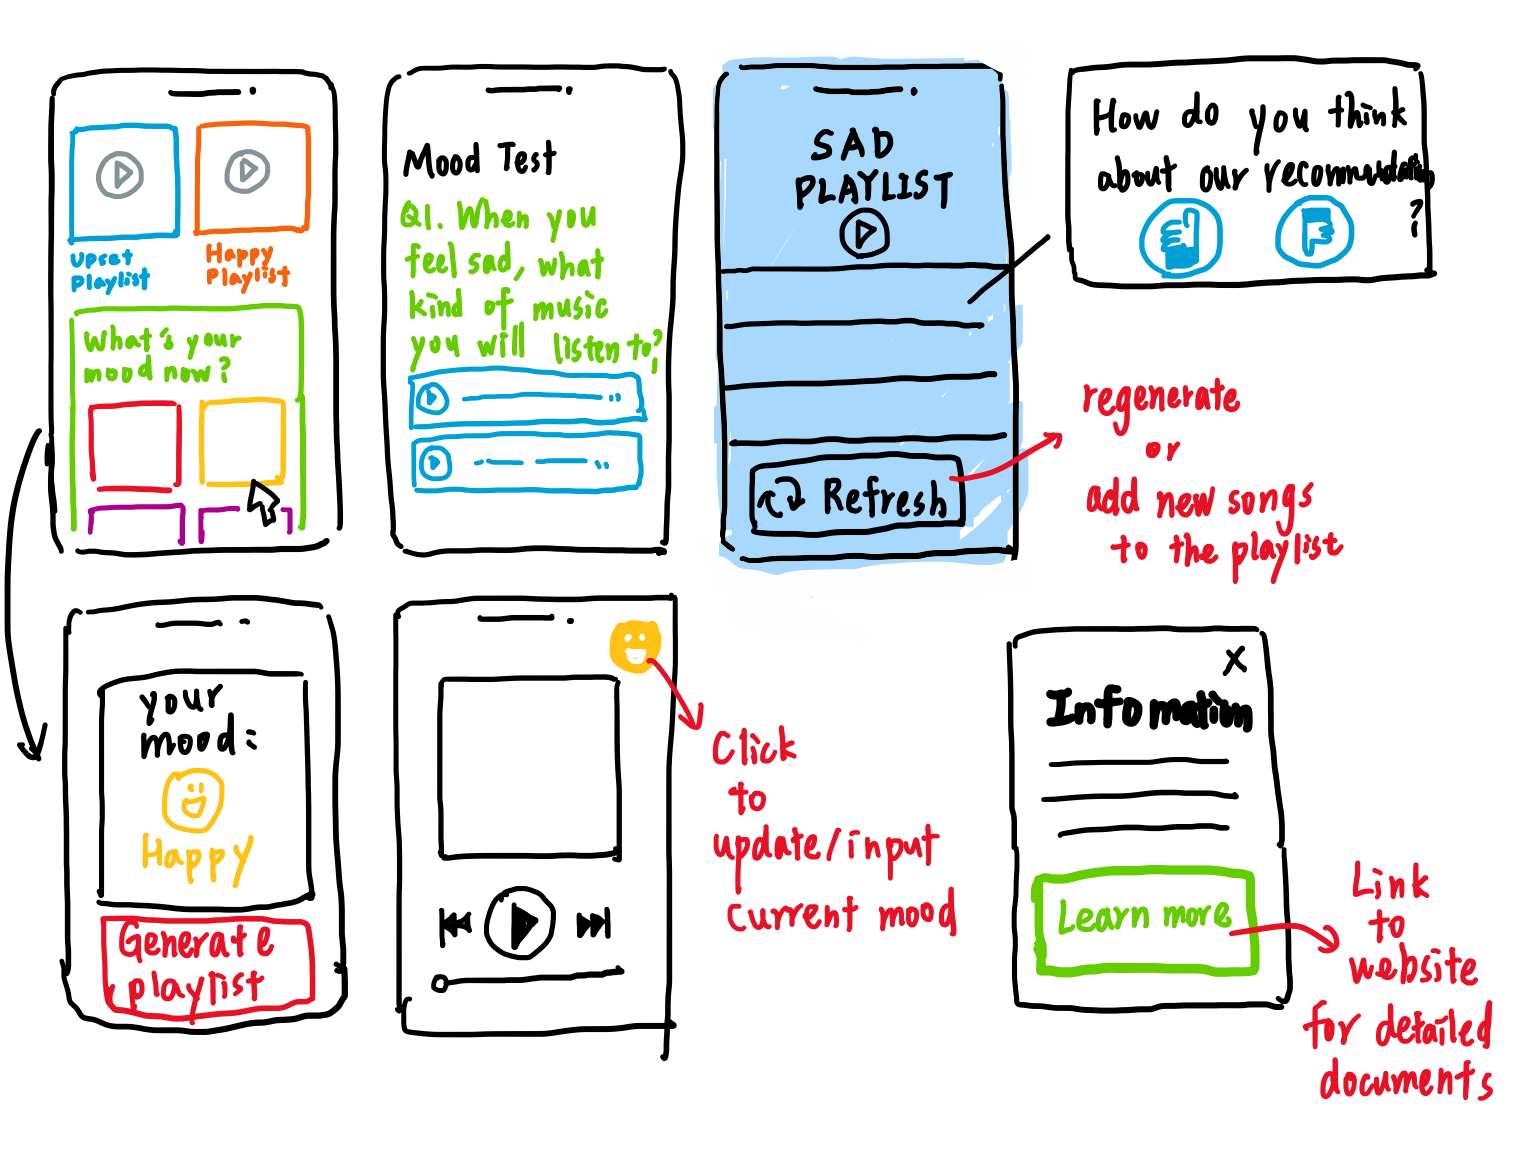 Upset
Playlist
Happy
Playlist
What's your
mood now?
Mood Test
Q1. When you
feel sad, what
kind of music
you will listen to?
SAD
PLAYLIST
Refresh
How do you think
about our recommendation
?
regenerate
or
add new songs
to the playlist
your
mood:
Happy
Generate
playlist
Click
to
update/input
current mood
X
Infomation
Learn more
Link
to
website
for detailed
documents